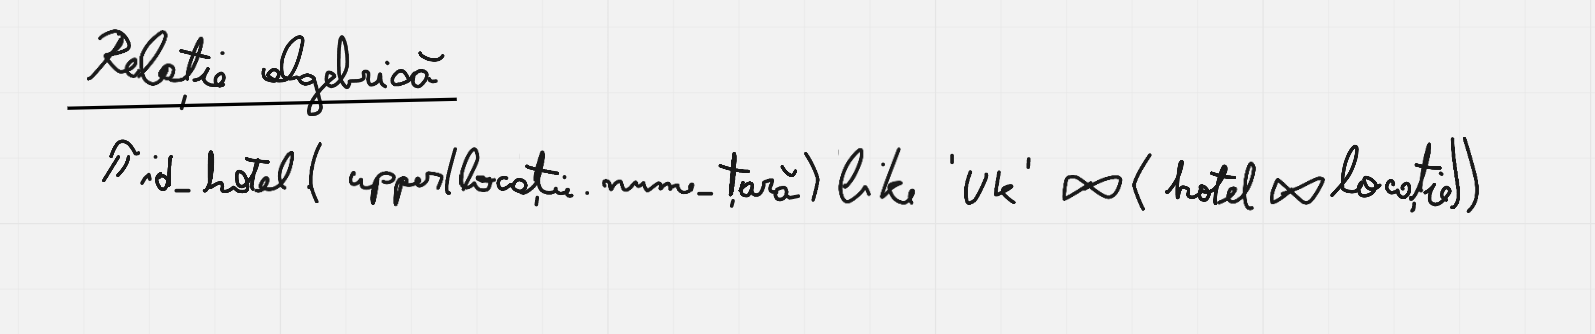 Relație algebrică
π id_hotel( upper(locație.nume_țară) like 'UK' ⋈ ( hotel ⋈ locație))